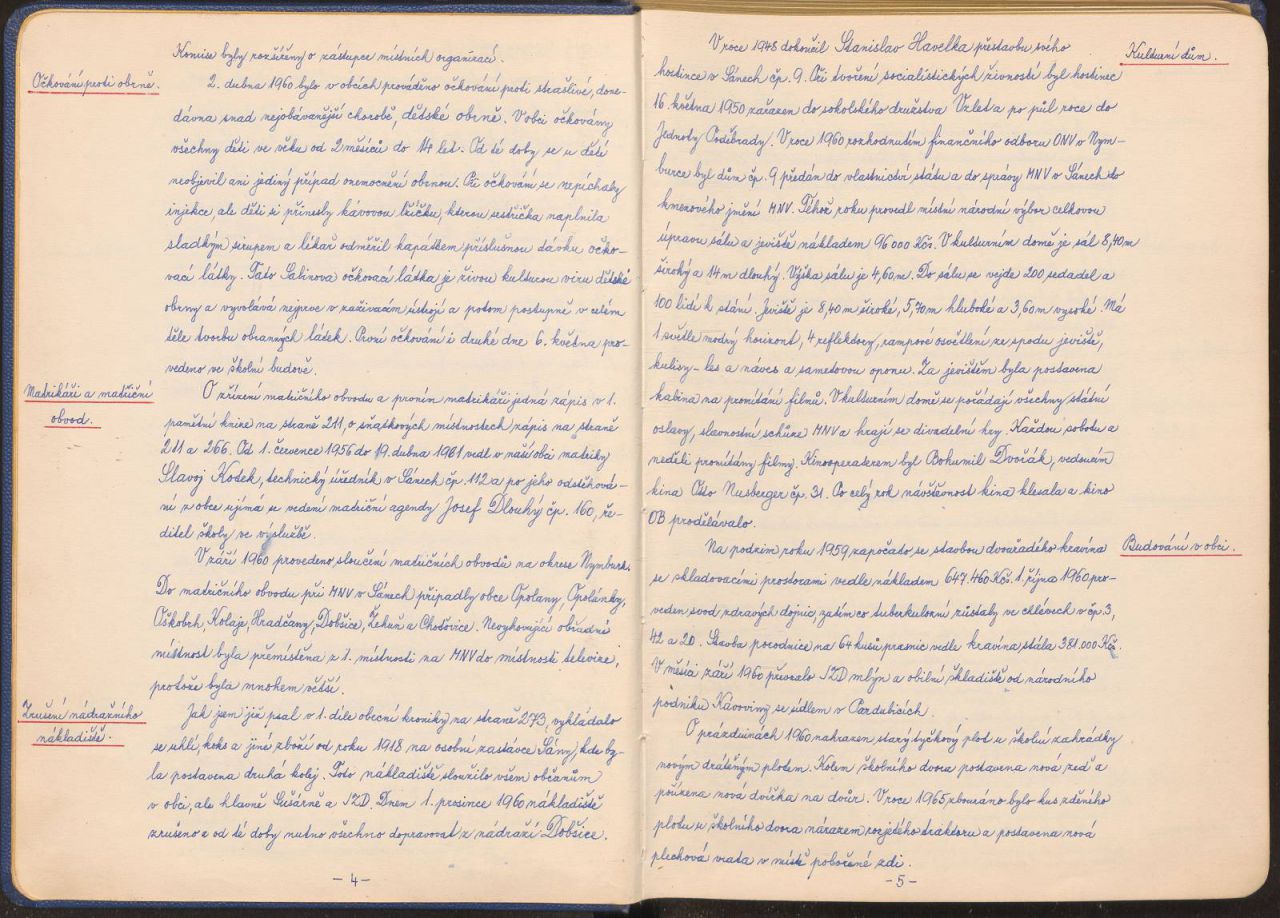 Komise byly rozšířeny o zástupce místních organizací.
Očkování proti obrně.
2. dubna 1960 bylo v obcích prováděno očkování proti strašlivé, done-
dávna snad nejobávanější chorobě, dětské obrně. V obci očkovány
všechny děti ve věku od 2 měsíců do 14 let. Od té doby se u dětí
neobjevil ani jediný případ onemocnění obrnou. Při očkování se nepíchaly
injekce, ale děti si přinesly kávovou lžičku, kterou sestřička naplnila
sladkým sirupem a lékař odměřil kapátkem příslušnou dávku očko-
vací látky. Tato Sabinova očkovací látka je živou kulturou viru dětské
obrny a vyvolává nejprve v zažívacím ústrojí a potom postupně v celém
těle tvorbu obranných látek. První očkování i druhé dne 6. května pro-
vedeno ve školní budově.
Matrikáři a matriční
obvod.
O zřízení matričního obvodu a prvním matrikáři jedná zápis v 1.
pamětní knize na straně 211, o sňatkových místnostech zápis na straně
211 a 266. Od 1. července 1956 do 19. dubna 1961 vedl v naší obci matriky
Slavoj Kodek, technický úředník v Sánech čp. 112 a po jeho odstěhová-
ní z obce ujímá se vedení matriční agendy Josef Dlouhý čp. 160, ře-
ditel školy ve výslužbě.
V září 1960 provedeno sloučení matričních obvodů na okrese Nymburk.
Do matričního obvodu při MNV v Sánech připadly obce Opolany, Opolánky,
Oškobrh, Kolaje, Hradčany, Dobšice, Žehuň a Choťovice. Nevyhovující obřadní
místnost byla přemístěna z 1. místnosti na MNV do místnosti televize,
protože byla mnohem větší.
Zrušení nádražního
nákladiště.
Jak jsem již psal v 1. díle obecní kroniky na straně 273, vykládalo
se uhlí, koks a jiné zboží od roku 1918 na osobní zastávce Sány, kde by-
la postavena druhá kolej. Toto nákladiště sloužilo všem občanům
v obci, ale hlavně Sušárně a JZD. Dnem 1. prosince 1960 nákladiště
zrušeno a od té doby nutno všechno dopravovat z nádraží Dobšice.
- 4 -
Kulturní dům.
V roce 1948 dokončil Stanislav Havelka přestavbu svého
hostince v Sánech čp. 9. Při tvoření socialistických živností byl hostinec
16. května 1950 zařazen do sokolského družstva Vzlet a po půl roce do
Jednoty Poděbrady. V roce 1960 rozhodnutím finančního odboru ONV v Nym-
burce byl dům čp. 9 předán do vlastnictví státu a do správy MNV v Sánech do
kmenového jmění MNV. Téhož roku provedl místní národní výbor celkovou
úpravu sálu a jeviště nákladem 96 000 Kčs. V kulturním domě je sál 8,40 m
široký a 14 m dlouhý. Výška sálu je 4,60 m. Do sálu se vejde 200 sedadel a
100 lidí k stání. Jeviště je 8,40 m široké, 5,70 m hluboké a 3,60 m vysoké. Má
1 světle modrý horizont, 4 reflektory, rampové osvětlení ze spodu jeviště,
kulisy - les a náves a sametovou oponu. Za jevištěm byla postavena
kabina na promítání filmů. V kulturním domě se pořádají všechny státní
oslavy, slavnostní schůze MNV a hrají se divadelní hry. Každou sobotu a
neděli promítány filmy. Kinooperatérem byl Bohumil Dvořák, vedoucím
kina Oto Nusberger čp. 31. Po celý rok návštěvnost kina klesala a kino
OB prodělávalo.
Budování v obci.
Na podzim roku 1959 započato se stavbou dvouřadého kravína
se skladovacími prostorami vedle nákladem 647 460 Kčs. 1. října 1960 pro-
veden svod zdravých dojnic, zatím co tuberkulozní zůstaly ve chlévech v čp. 3,
42 a 20. Stavba porodnice na 64 kusů prasnic vedle kravína stála 381 000 Kčs.
V měsíci září 1960 převzalo JZD mlýn a obilní skladiště od národního
podniku Kávoviny se sídlem v Pardubicích.
O prázdninách 1960 nahrazen starý tyčkový plot u školní zahrádky
novým drátěným plotem. Kolem školního dvora postavena nová zeď a
pořízena nová dvířka na dvůr. V roce 1965 zbouráno bylo kus zděného
plotu u školního dvora nárazem rozjetého traktoru a postavena nová
plechová vrata v místě pobořené zdi.
- 5 -